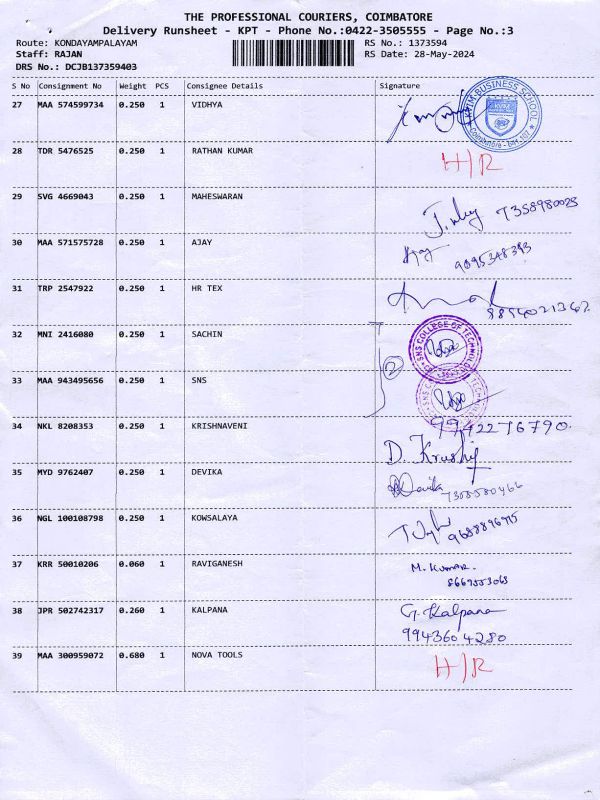 THE PROFESSIONAL COURIERS, COIMBATORE
Delivery Runsheet - KPT - Phone No.:0422-3505555 - Page No.:3
Route: KONDAYAMPALAYAM RS No.: 1373594
Staff: RAJAN RS Date: 28-May-2024
DRS No.: DCJB137359403
S No Consignment No Weight PCS Consignee Details Signature
27 MAA 574599734 0.250 1 VIDHYA
BUSINESS SCHOOL
Coimbatore - 641 107
28 TDR 5476525 0.250 1 RATHAN KUMAR H/R
29 SVG 4669043 0.250 1 MAHESWARAN
7358980028
30 MAA 571575728 0.250 1 AJAY
9095348393
31 TRP 2547922 0.250 1 HR TEX
8894021362
32 MNI 2416080 0.250 1 SACHIN
SNS COLLEGE OF TECHNOLOGY
33 MAA 943495656 0.250 1 SNS
2
34 NKL 8208353 0.250 1 KRISHNAVENI 9942276790.
D. Krushij
35 MYD 9762407 0.250 1 DEVIKA Devika
7305580466
36 NGL 100108798 0.250 1 KOWSALAYA
37 KRR 50010206 0.060 1 RAVIGANESH M. KUMAR.
38 JPR 502742317 0.260 1 KALPANA G. Kalpana
9943604280
39 MAA 300959072 0.680 1 NOVA TOOLS H/R